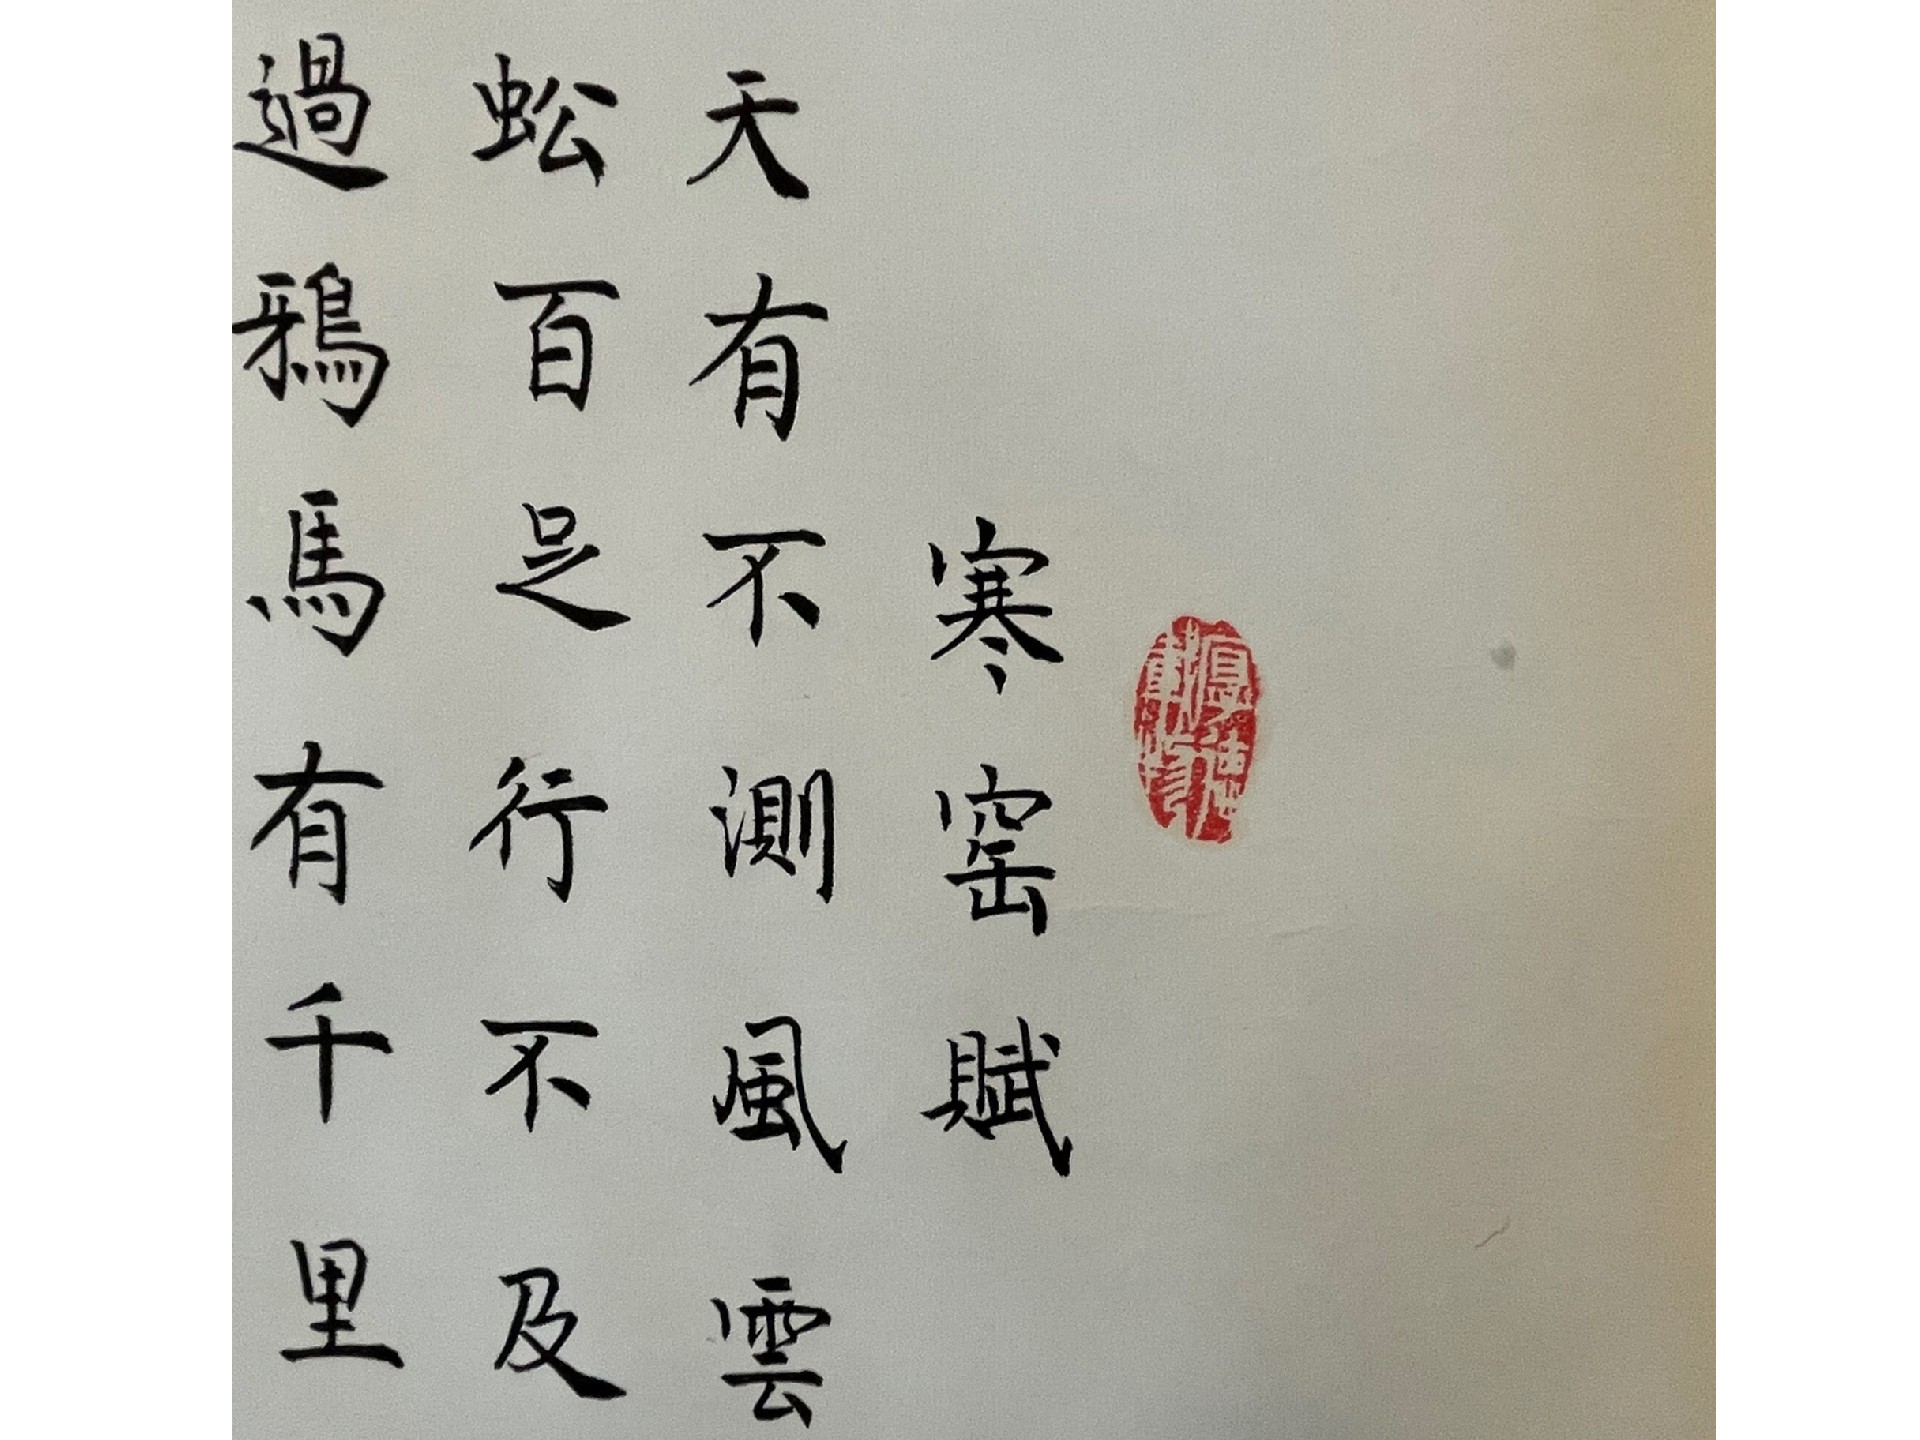 厚德載物
寒窑賦
天有不測風雲
蚣百足行不及
過鴉馬有千里